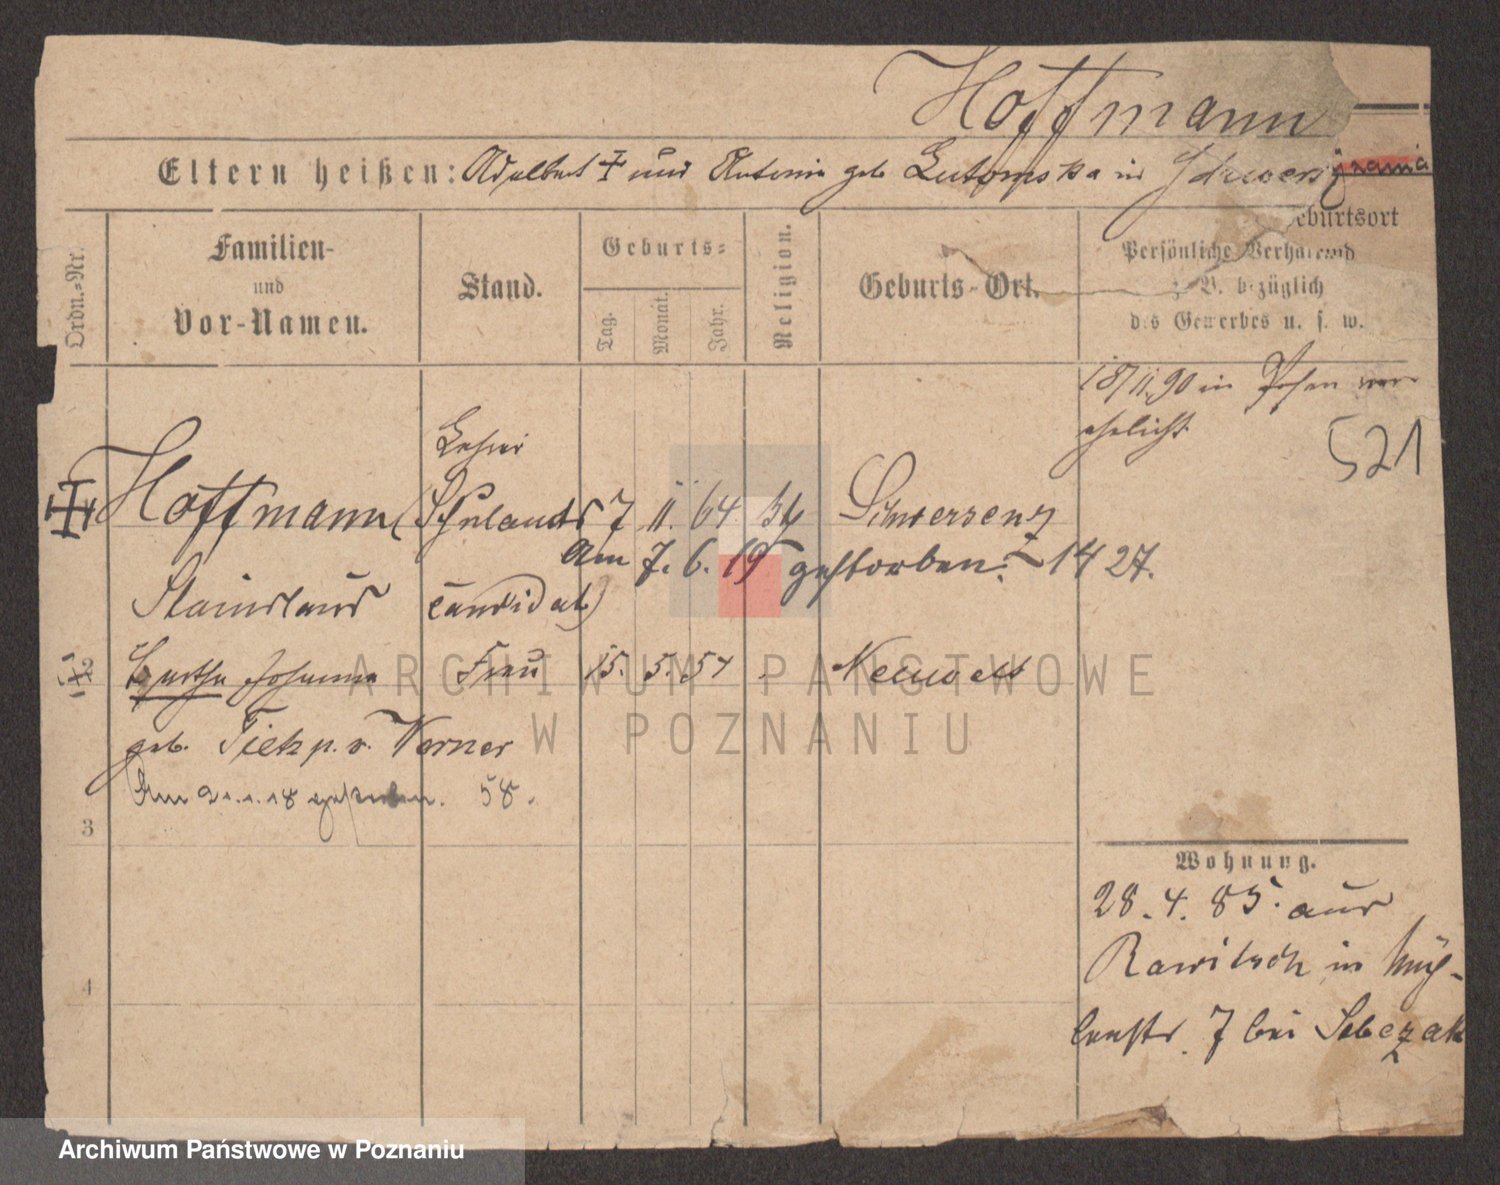 Hoffmann
Eltern heißen: Adalbert † und Antonie geb Lutomska in Schwersenz
Geburtsort
Ordn.-Nr.
Familien-
und
Vor-Namen.
Stand.
Geburts-
Tag.
Monat.
Jahr.
Religion.
Geburts-Ort.
Persönliche Verhältnisse
z. B. bezüglich
des Gewerbes u. s. w.
18/11.90 in Posen ver-
ehelicht
521
Lehrer
Hoffmann (Schulamts 7 11. 64 kth Schwersenz
Am 7. 6. 19 gestorben. 1427.
Stanislaus candidat)
2 Bertha Johanna Frau 15. 5. 57
geb. Tietz p. v. Werner
Am 21.1.18 gestorben. 58.
3
4
Wohnung.
28. 4. 85. aus
Rawitsch in Müh-
lenstr. 7 bei Sobczak
ARCHIWUM PAŃSTWOWE
W POZNANIU
Archiwum Państwowe w Poznaniu